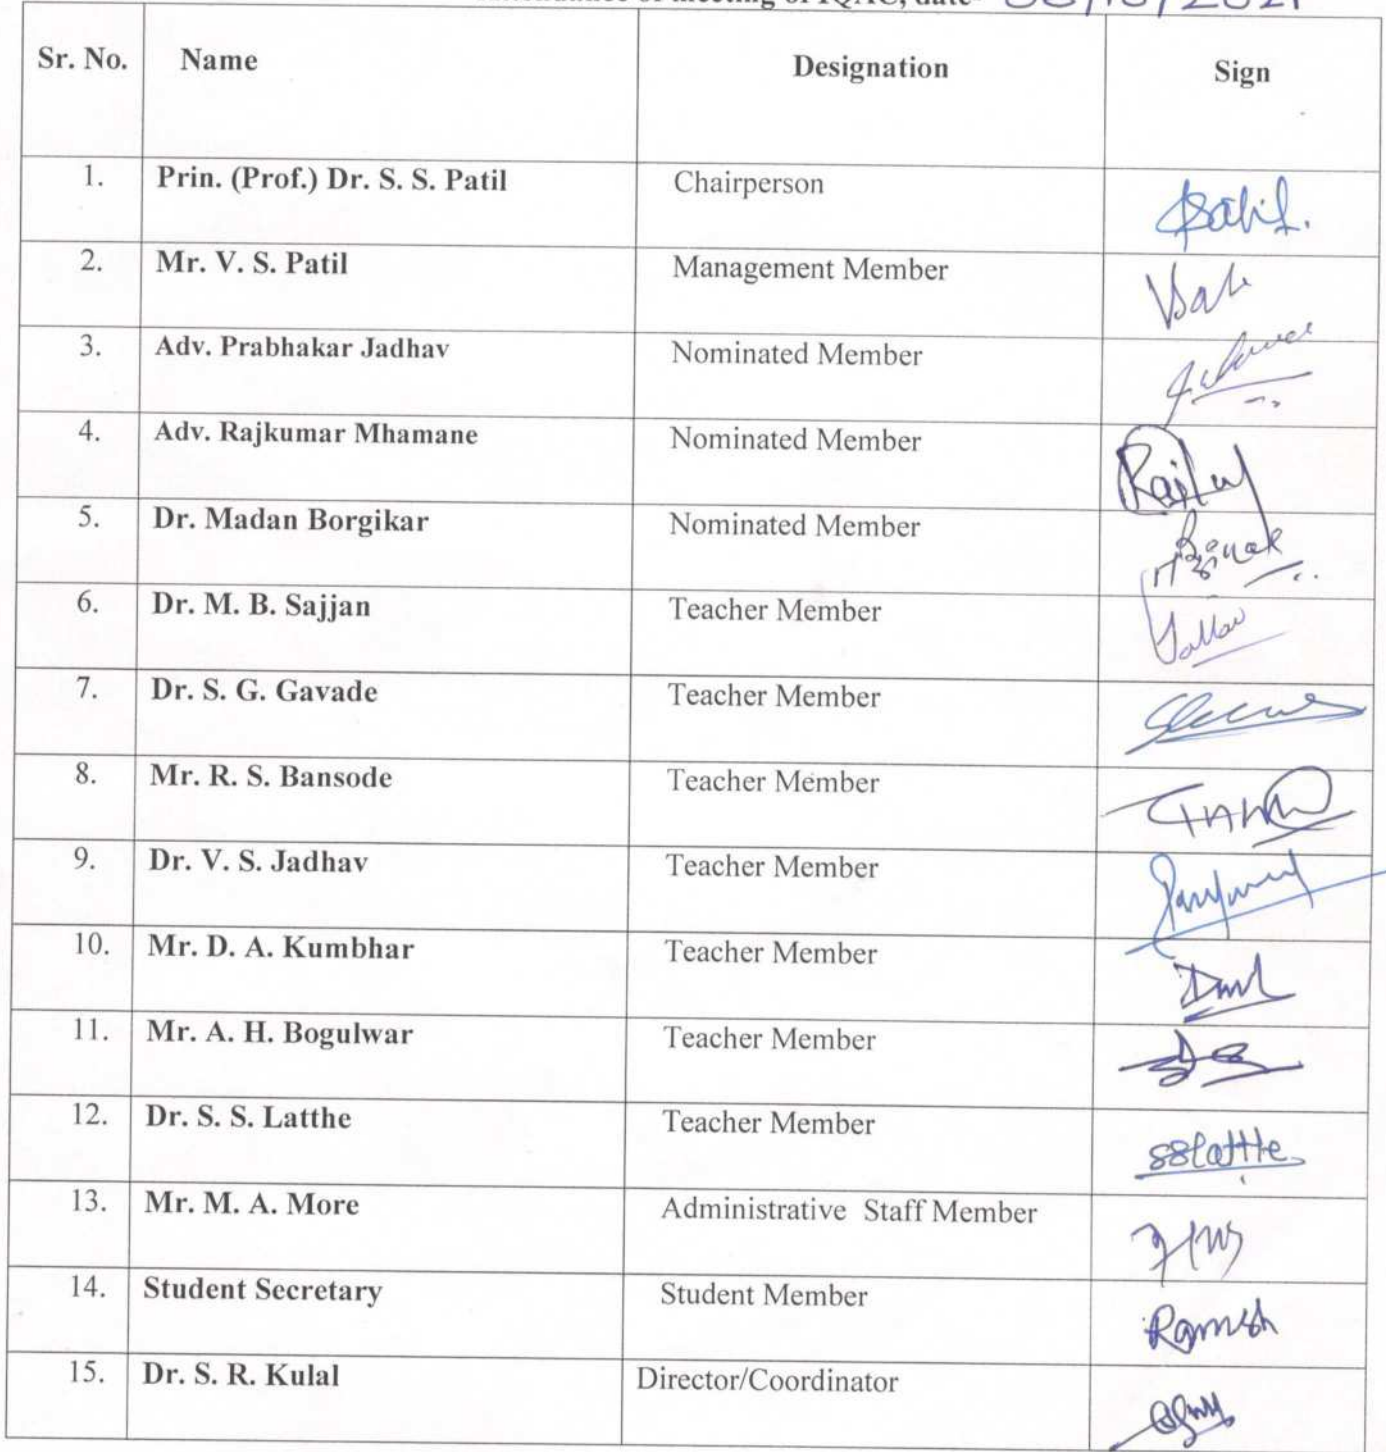 of meeting of IQAC, date-
Sr. No. Name Designation Sign
1. Prin. (Prof.) Dr. S. S. Patil Chairperson
2. Mr. V. S. Patil Management Member
3. Adv. Prabhakar Jadhav Nominated Member
4. Adv. Rajkumar Mhamane Nominated Member
5. Dr. Madan Borgikar Nominated Member
6. Dr. M. B. Sajjan Teacher Member
7. Dr. S. G. Gavade Teacher Member
8. Mr. R. S. Bansode Teacher Member
9. Dr. V. S. Jadhav Teacher Member
10. Mr. D. A. Kumbhar Teacher Member
11. Mr. A. H. Bogulwar Teacher Member
12. Dr. S. S. Latthe Teacher Member sslatthe
13. Mr. M. A. More Administrative Staff Member
14. Student Secretary Student Member Ramesh
15. Dr. S. R. Kulal Director/Coordinator